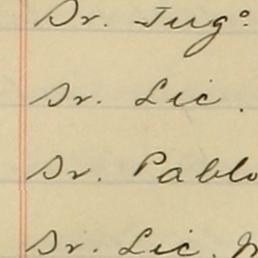 Sr. Jugº
Sr. Lic.
Sr. Pablo
Sr. Lic.